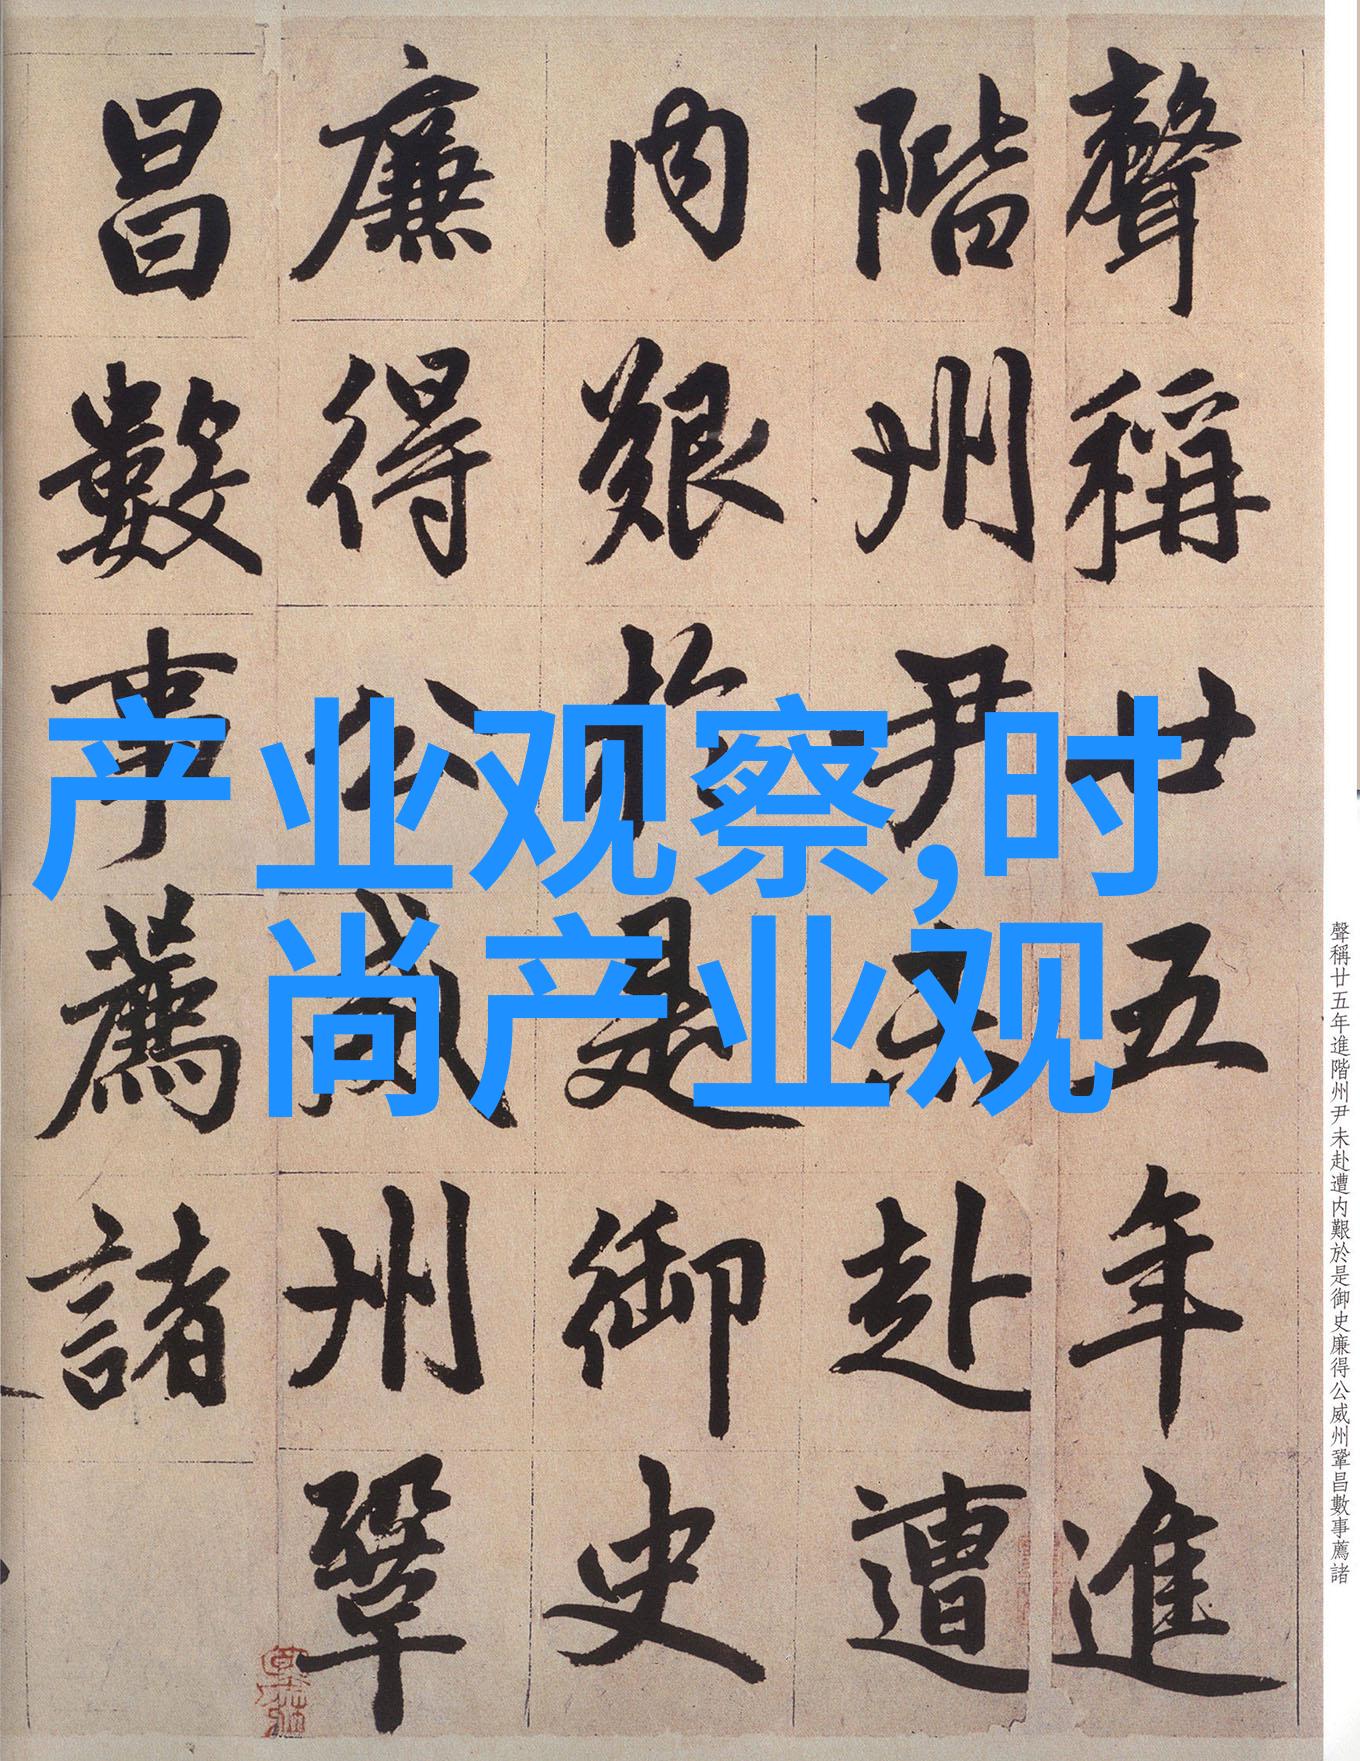 聲稱廿五年進
階州尹未赴遭
内艱於是御史
廉得公威州鞏
昌數事薦諸
产业观察,时
尚产业观
聲稱廿五年進階州尹未赴遭内艱於是御史廉得公威州鞏昌數事薦諸